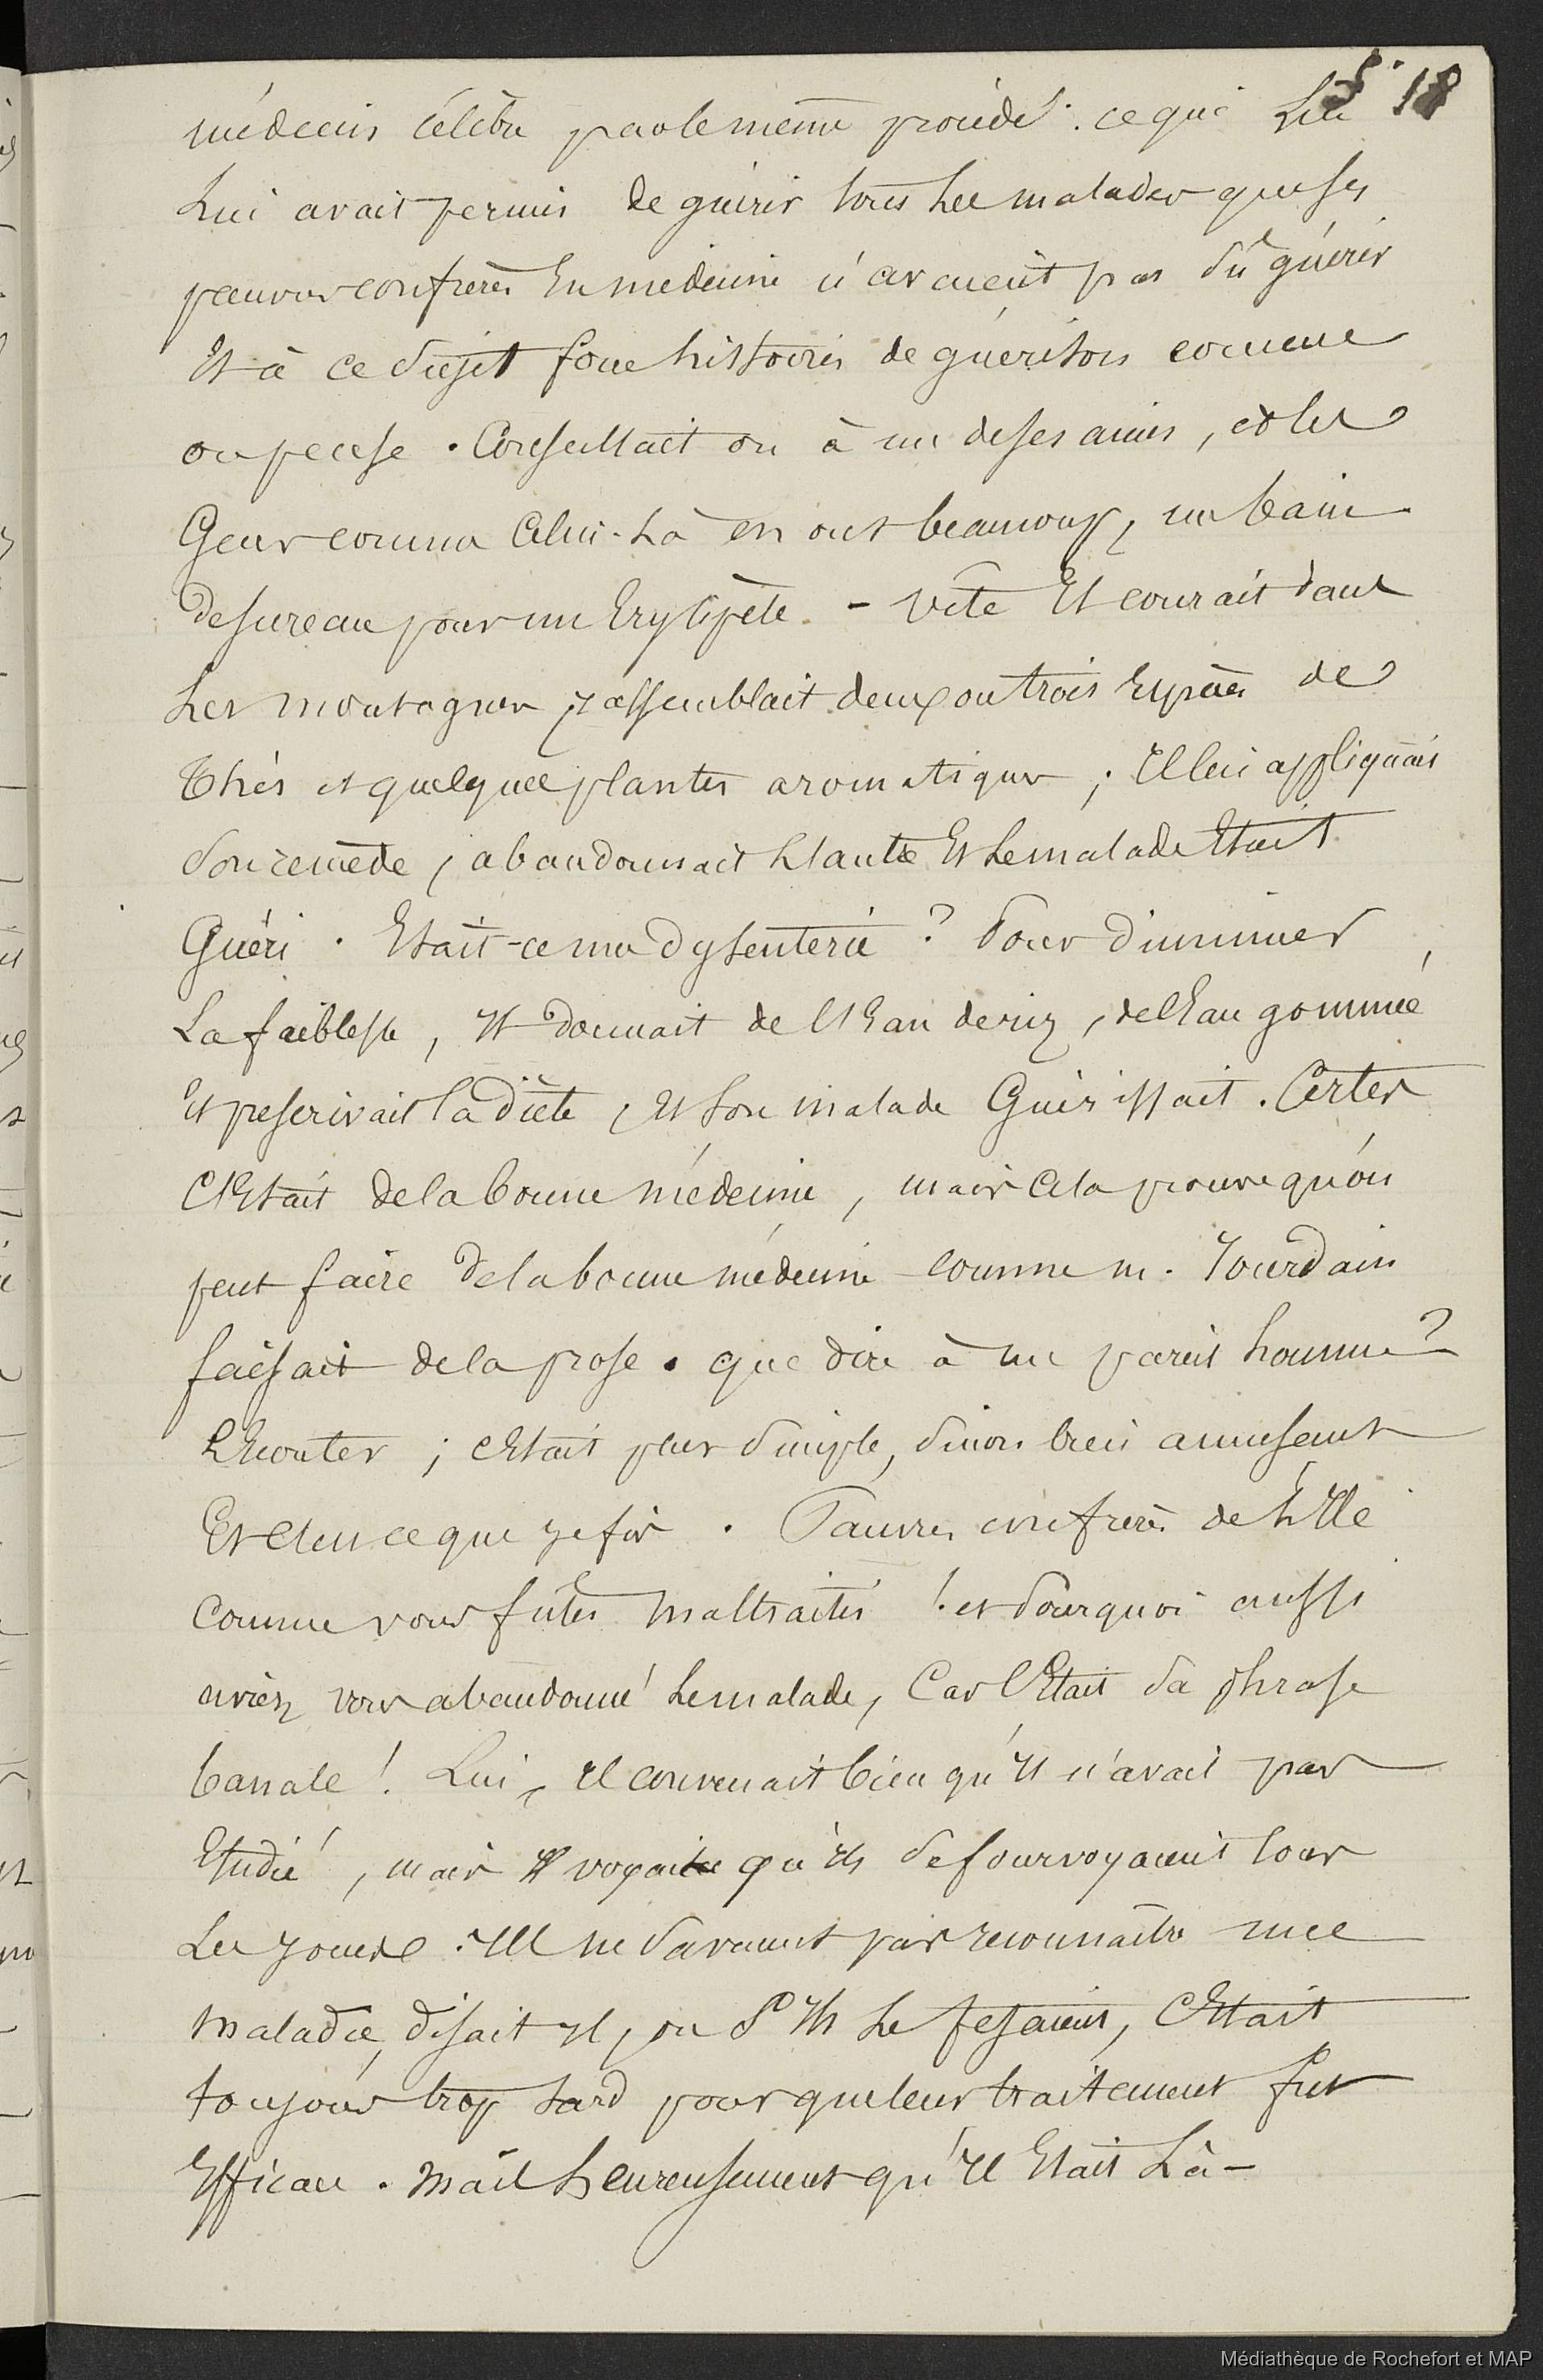 18
médecin célèbre par le même procédé. ce qui
Lui avait permis de guérir tous les malades que ses
pauvres confrères En médecine n'avaient pas sû guérir
Et à ce Sujet force histoires de guérisons comme
on pense. Conseillait on à un de ses amis, et les
Gens comme Celui-Là en ont beaucoup, un bain
de sureau pour un Erysipèle. - Vite Il courait dans
Les montagnes, rassemblait deux ou trois Espèces de
Thés et quelques plantes aromatiques; Il lui appliquait
Son remède, abandonnait L'autre Et Le malade Etait
Guéri. Etait-ce une dysenterie? Pour diminuer
La faiblesse, Il donnait de l'Eau de riz, de l'Eau gommée,
Et prescrivait la diète, Et Son malade Guérissait. Certes
C'Etait de la bonne médecine, mais Cela prouve qu'on
peut faire de la bonne médecine comme m. Jourdain
faisait de la prose. que dire à un pareil homme?
L'Ecouter; c'Etait plus Simple, Sinon bien amusant
Et C'est ce que je fis. Pauvres confrères de L'Ile
comme vous fûtes maltraités! et Pourquoi aussi
aviez vous abandonné Le malade, Car C'Etait Sa phrase
banale! Lui, Il convenait bien qu'Il n'avait pas
Etudié, mais Il voyait qu'Ils Se fourvoyaient tous
Les jours. Ils ne Savaient pas reconnaître une
maladie, disait Il, ou S'Ils Le fesaient, C'Etait
toujours trop tard pour que leur traitement fut
Efficace. mais heureusement qu'Il Etait Là-
Médiathèque de Rochefort et MAP